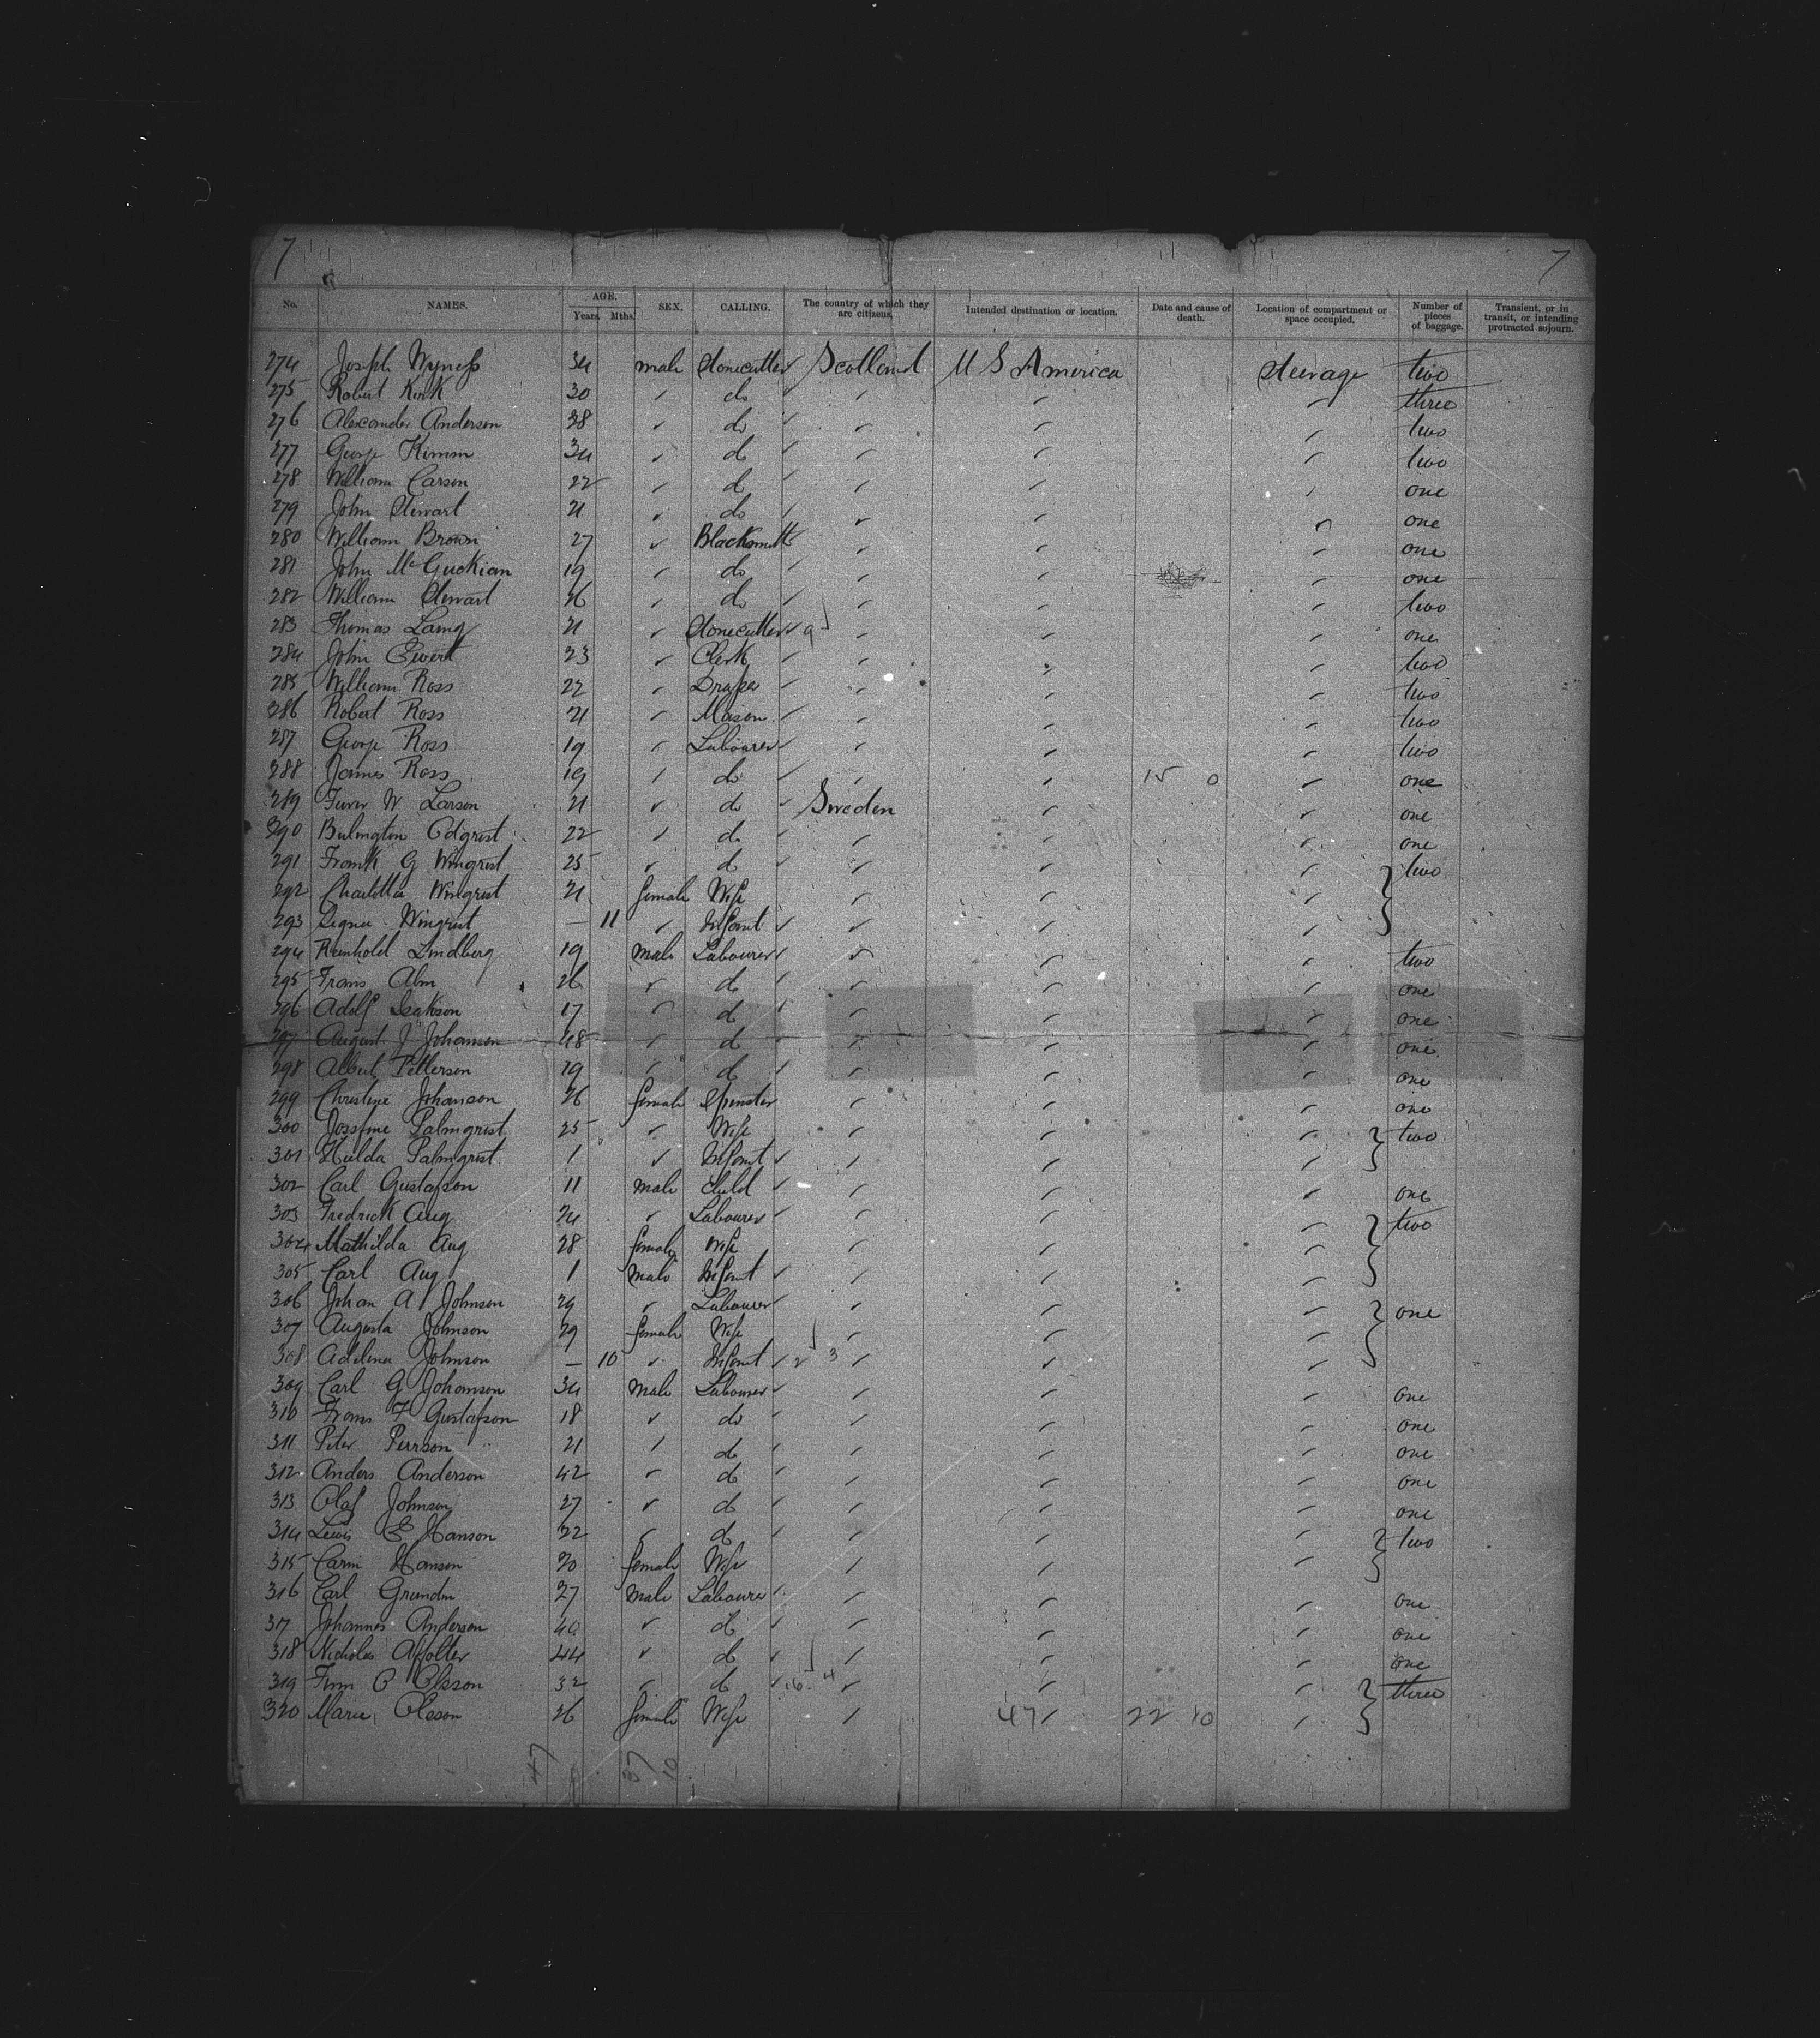 7 7
No. NAMES. AGE. Years. Mths. SEX. CALLING. The country of which they are citizens. Intended destination or location. Date and cause of death. Location of compartment or space occupied. Number of pieces of baggage. Transient, or in transit, or intending protracted sojourn.
274 Joseph Wyness 34 male Stonecutter Scotland U S America Steerage two
275 Robert Kirk 30 do three
276 Alexander Anderson 38 do two
277 George Kimm 34 do two
278 William Carson 22 do one
279 John Stewart 21 do one
280 William Brown 27 Blacksmith one
281 John McGuckian 19 do one
282 William Stewart 26 do two
283 Thomas Laing 21 Stonecutter 9 one
284 John Ewert 23 Clerk two
285 William Ross 22 Draper two
286 Robert Ross 21 Mason two
287 George Ross 19 Labourer two
288 James Ross 19 do 15 0 one
289 W Larson 21 do Sweden one
290 22 do one
291 Frank G Wingrist 25 do two
292 Charlotta Wingrist 21 female Wife
293 Signe Wingrist — 11 Infant
294 Reinhold Lindberg 19 male Labourer two
295 Frans Alm 26 do one
296 Adolf Isakson 17 do one
297 August J Johanson 48 do one
298 Albert Petterson 19 do one
299 Christine Johanson 26 female Spinster one
300 Josefine Palmqrist 25 Wife two
301 Hulda Palmqrist 1 Infant
302 Carl Gustafson 11 male Child one
303 Fredrick Aug 24 Labourer two
304 Mathilda Aug 28 female Wife
305 Carl Aug 1 male Infant
306 Johan A Johnson 29 Labourer one
307 Augusta Johnson 29 female Wife
308 Adelina Johnson — 10 Infant 2 3
309 Carl G Johanson 34 male Labourer one
310 Frans F Gustafson 18 do one
311 Peter Perrson 21 do one
312 Anders Anderson 42 do one
313 Olaf Johnson 27 do one
314 Lewis E Hanson 22 do two
315 Carin Hanson 20 female Wife
316 Carl Grundin 27 male Labourer one
317 Johannes Anderson 40 do one
318 Nicholas Afolter 44 do one
319 Finn O Olsson 32 do 16 4 three
320 Marie Olsson 26 female Wife 47 22 10
47 37 10